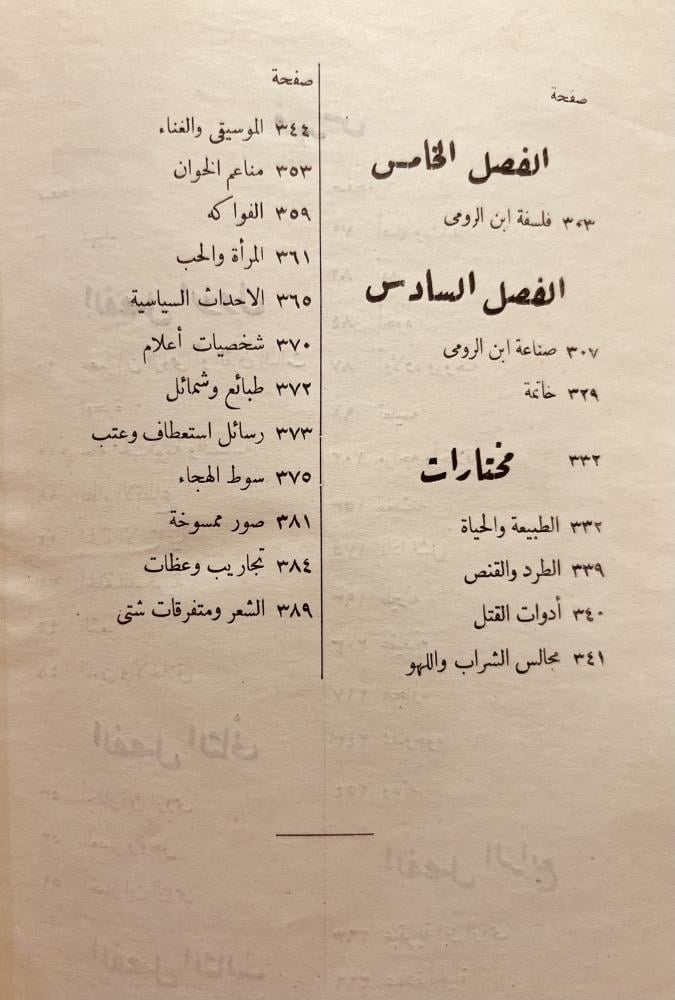 صفحة
الفصل الخامس
٣٠٣ فلسفة ابن الرومى
الفصل السادس
٣٠٧ صناعة ابن الرومى
٣٢٩ خاتمة
٣٣٢ مختارات
٣٣٢ الطبيعة والحياة
٣٣٩ الطرد والقنص
٣٤٠ أدوات القتل
٣٤١ مجالس الشراب واللهو
صفحة
٣٤٤ الموسيقى والغناء
٣٥٣ مناعم الخوان
٣٥٩ الفواكه
٣٦١ المرأة والحب
٣٦٥ الاحداث السياسية
٣٧٠ شخصيات أعلام
٣٧٢ طبائع وشمائل
٣٧٣ رسائل استعطاف وعتب
٣٧٥ سوط الهجاء
٣٨١ صور ممسوخة
٣٨٤ تجاريب وعظات
٣٨٩ الشعر ومتفرقات شتى